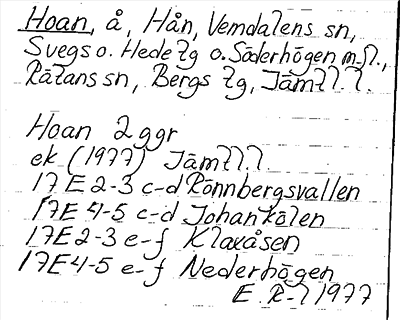 Hoan, å, Hån, Vemdalens sn,
Svegs o. Hede tg o. Söderhögen m.fl.,
Rätans sn, Bergs tg, Jämtl. l.
Hoan 2 ggr
ek (1977) Jämtl.l.
17 E 2-3 c-d Rönnbergsvallen
17E 4-5 c-d Johankölen
17E2-3 e-f Klaxåsen
17E4-5 e-f Nederhögen
E. R-l 1977